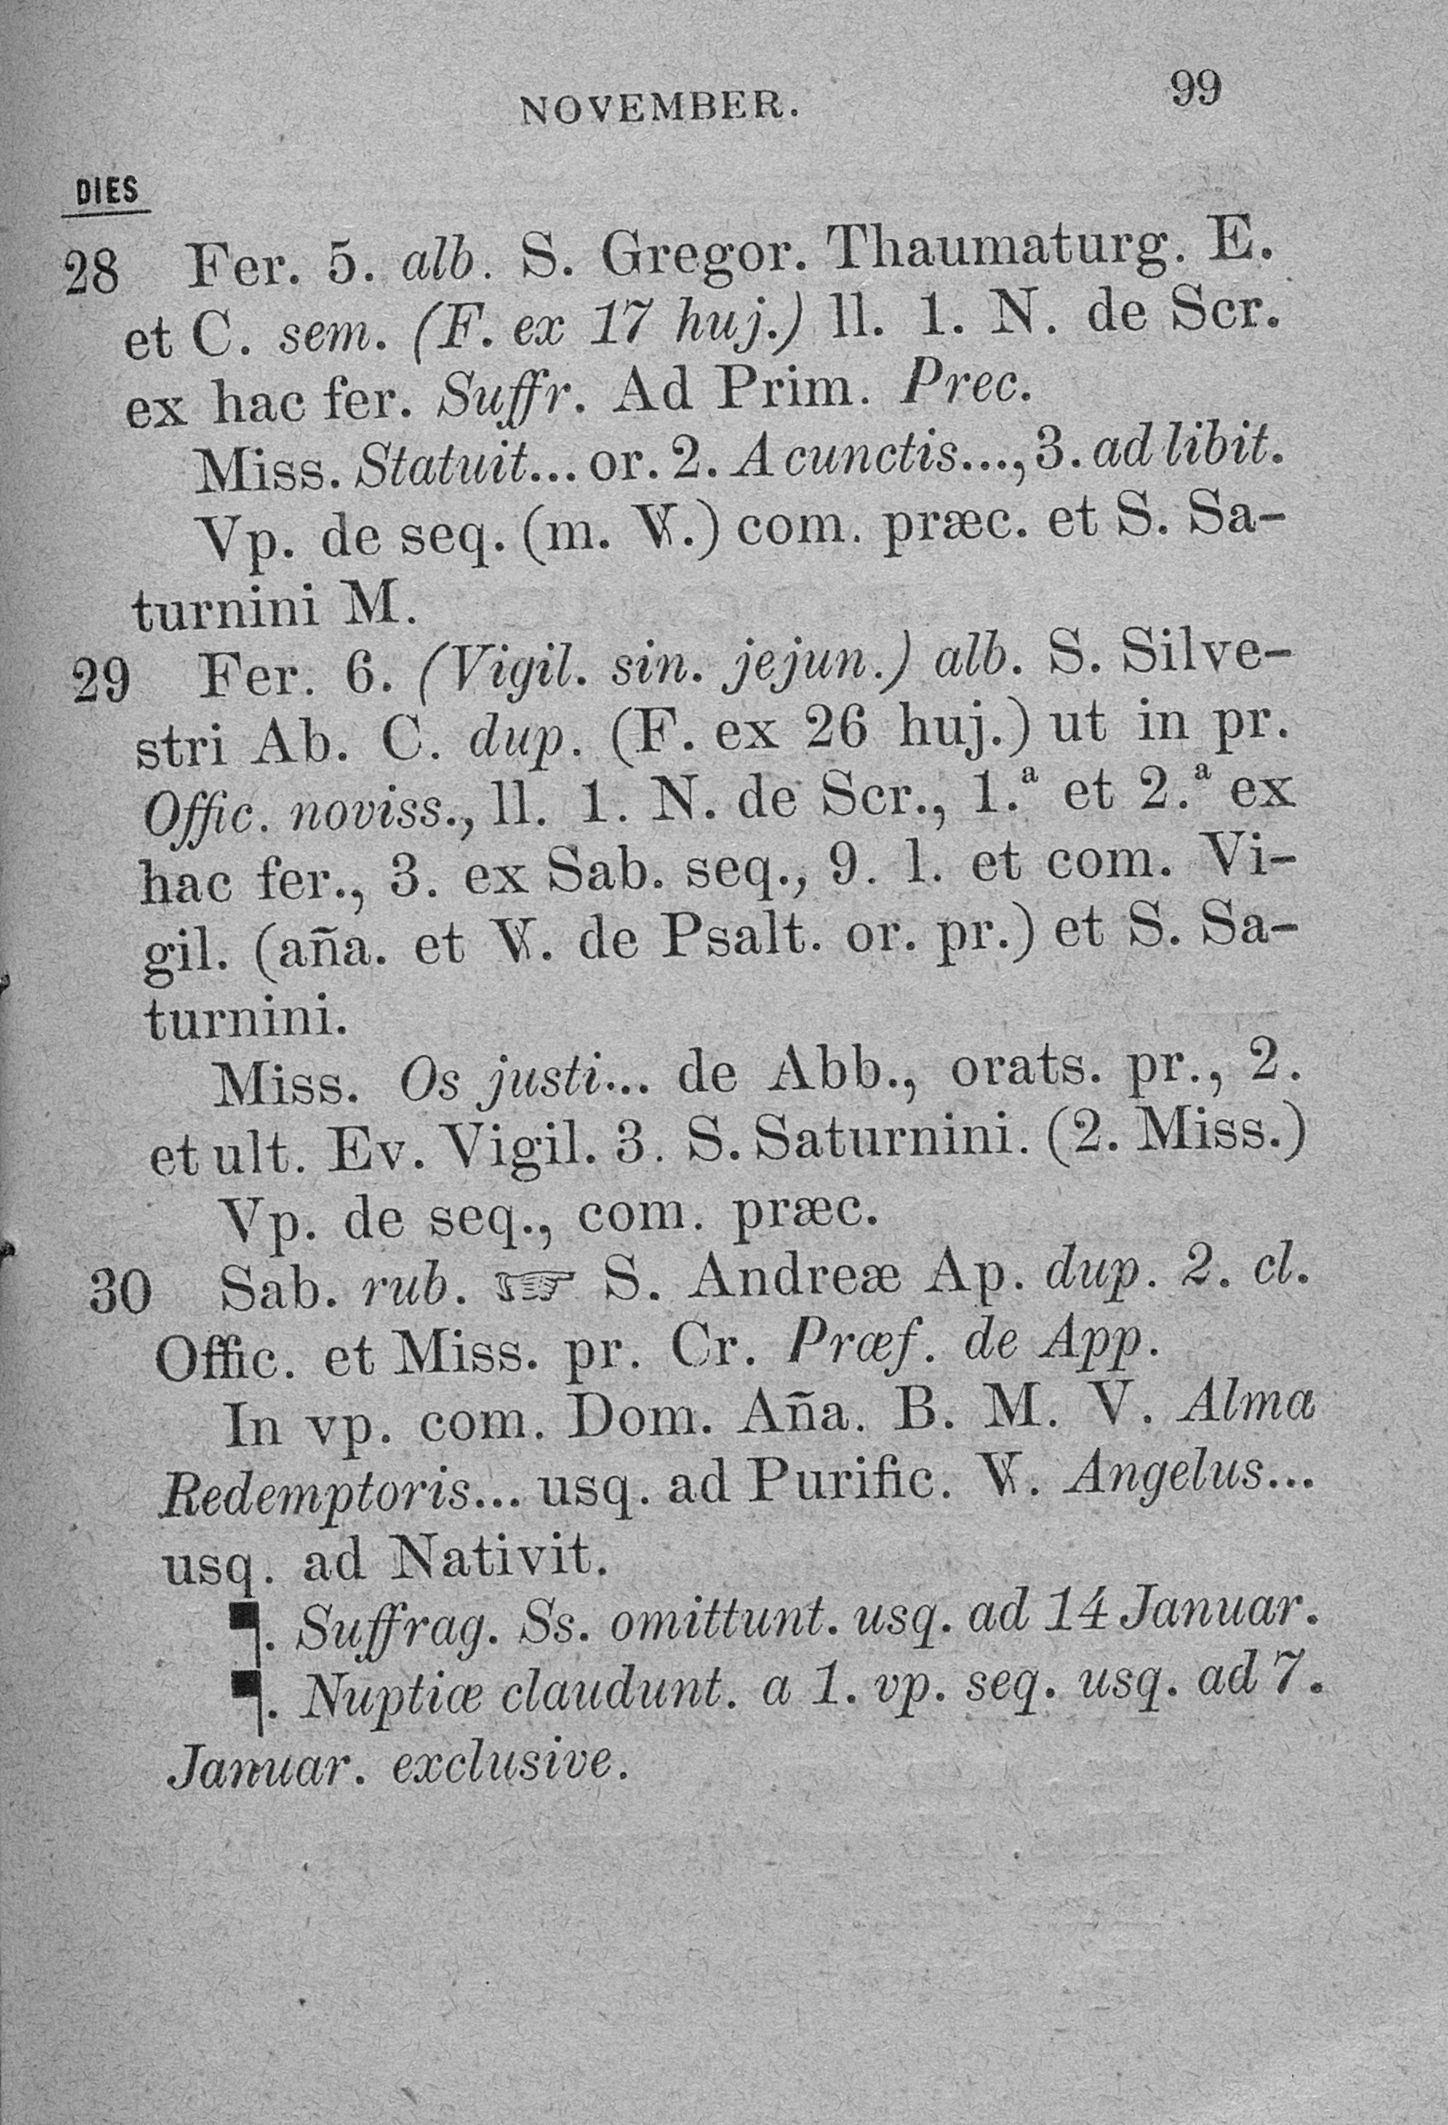 NOVEMBER. 99
DIES
28 Fer. 5. alb. S. Gregor. Thaumaturg. E.
et C. sem. (F. ex 17 huj.) ll. 1. N. de Scr.
ex hac fer. Suffr. Ad Prim. Prec.
Miss. Statuit... or. 2. A cunctis..., 3. ad libit.
Vp. de seq. (m. ℣.) com. præc. et S. Sa-
turnini M.
29 Fer. 6. (Vigil. sin. jejun.) alb. S. Silve-
stri Ab. C. dup. (F. ex 26 huj.) ut in pr.
Offic. noviss., ll. 1. N. de Scr., 1.ª et 2.ª ex
hac fer., 3. ex Sab. seq., 9. l. et com. Vi-
gil. (aña. et ℣. de Psalt. or. pr.) et S. Sa-
turnini.
Miss. Os justi... de Abb., orats. pr., 2.
et ult. Ev. Vigil. 3. S. Saturnini. (2. Miss.)
Vp. de seq., com. præc.
30 Sab. rub. ☞ S. Andreæ Ap. dup. 2. cl.
Offic. et Miss. pr. Cr. Præf. de App.
In vp. com. Dom. Aña. B. M. V. Alma
Redemptoris... usq. ad Purific. ℣. Angelus...
usq. ad Nativit.
¶. Suffrag. Ss. omittunt. usq. ad 14 Januar.
¶. Nuptiæ claudunt. a 1. vp. seq. usq. ad 7.
Januar. exclusive.